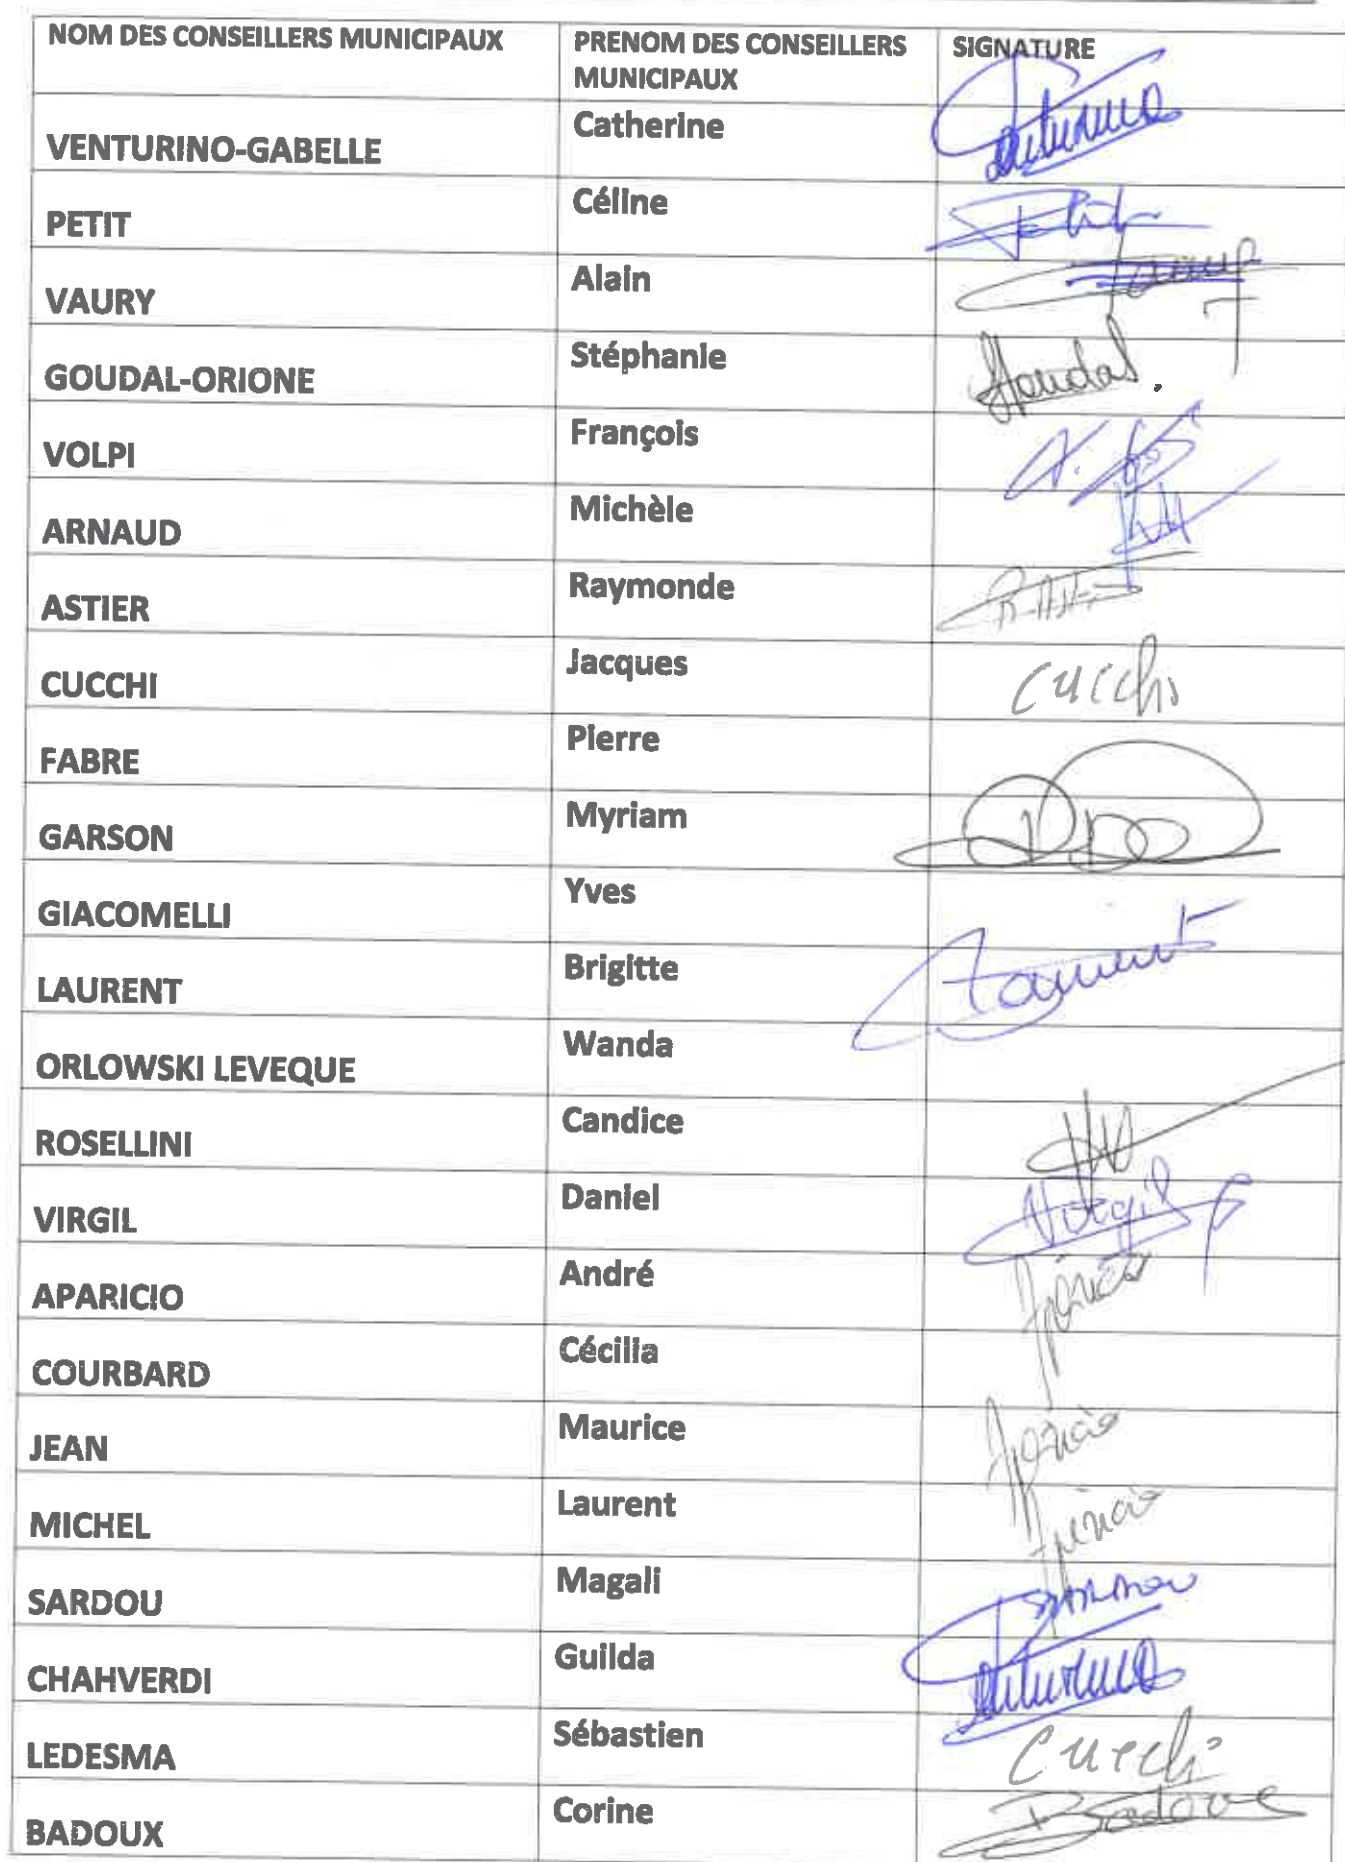 NOM DES CONSEILLERS MUNICIPAUX PRENOM DES CONSEILLERS SIGNATURE
MUNICIPAUX
VENTURINO-GABELLE Catherine
PETIT Céline Petit
VAURY Alain
GOUDAL-ORIONE Stéphanie Goudal.
VOLPI François
ARNAUD Michèle
ASTIER Raymonde
CUCCHI Jacques Cucchi
FABRE Pierre
GARSON Myriam
GIACOMELLI Yves
LAURENT Brigitte Laurent
ORLOWSKI LEVEQUE Wanda
ROSELLINI Candice
VIRGIL Daniel Virgil
APARICIO André Aparicio
COURBARD Cécilia
JEAN Maurice Aparicio
MICHEL Laurent Aparicio
SARDOU Magali SARDOU
CHAHVERDI Guilda
LEDESMA Sébastien Cucchi
BADOUX Corine Badoux